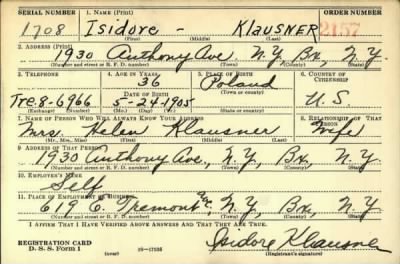 SERIAL NUMBER 1. NAME (Print) ORDER NUMBER
1708 Isidore - Klausner 2157
(First) (Middle) (Last)
2. ADDRESS (Print)
1930 Anthony Ave N.Y. Bx, N.Y.
(Number and street or R. F. D. number) (Town) (County) (State)
3. TELEPHONE 4. AGE IN YEARS 5. PLACE OF BIRTH 6. COUNTRY OF CITIZENSHIP
36 Poland
DATE OF BIRTH (Town or county)
Tre. 8-6966 5-24-1905 U.S.
(Exchange) (Number) (Mo.) (Day) (Yr.) (State or country)
7. NAME OF PERSON WHO WILL ALWAYS KNOW YOUR ADDRESS 8. RELATIONSHIP OF THAT PERSON
Mrs. Helen Klausner Wife
(Mr., Mrs., Miss) (First) (Middle) (Last)
9. ADDRESS OF THAT PERSON
1930 Anthony Ave., N.Y, Bx, N.Y.
(Number and street or R. F. D. number) (Town) (County) (State)
10. EMPLOYER'S NAME
Self
11. PLACE OF EMPLOYMENT OR BUSINESS
619 E. Tremont Ave, N.Y, Bx, N.Y.
(Number and street or R. F. D. number) (Town) (County) (State)
I AFFIRM THAT I HAVE VERIFIED ABOVE ANSWERS AND THAT THEY ARE TRUE.
REGISTRATION CARD
D. S. S. Form 1 16-17105 Isidore Klausner
(Registrant's signature)